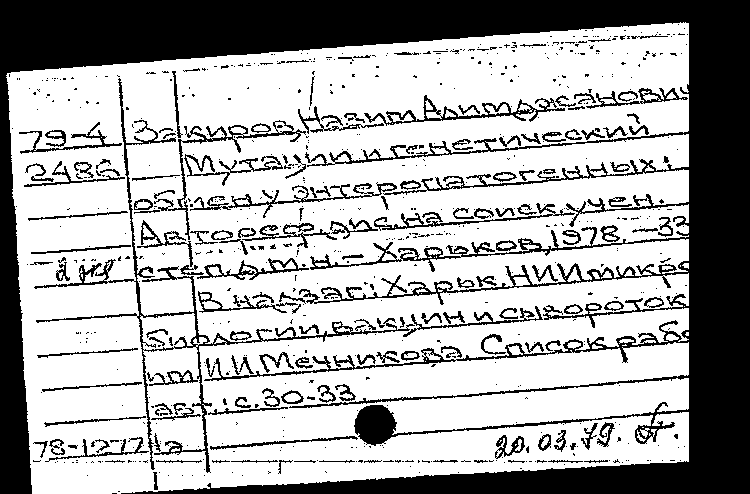 79-4 Закиров, Назим Алимджанович
2486 Мутации и генетический
обмен у энтеропатогенных:
Автореф. дис. на соиск. учен.
2 экз степ. д.м.н. - Харьков, 1978. - 33
В надзаг: Харьк. НИИ микро
биологии, вакцин и сывороток
им. И.И. Мечникова. Список работ
авт.: с. 30-33.
78-1277 1а
20.03.79.